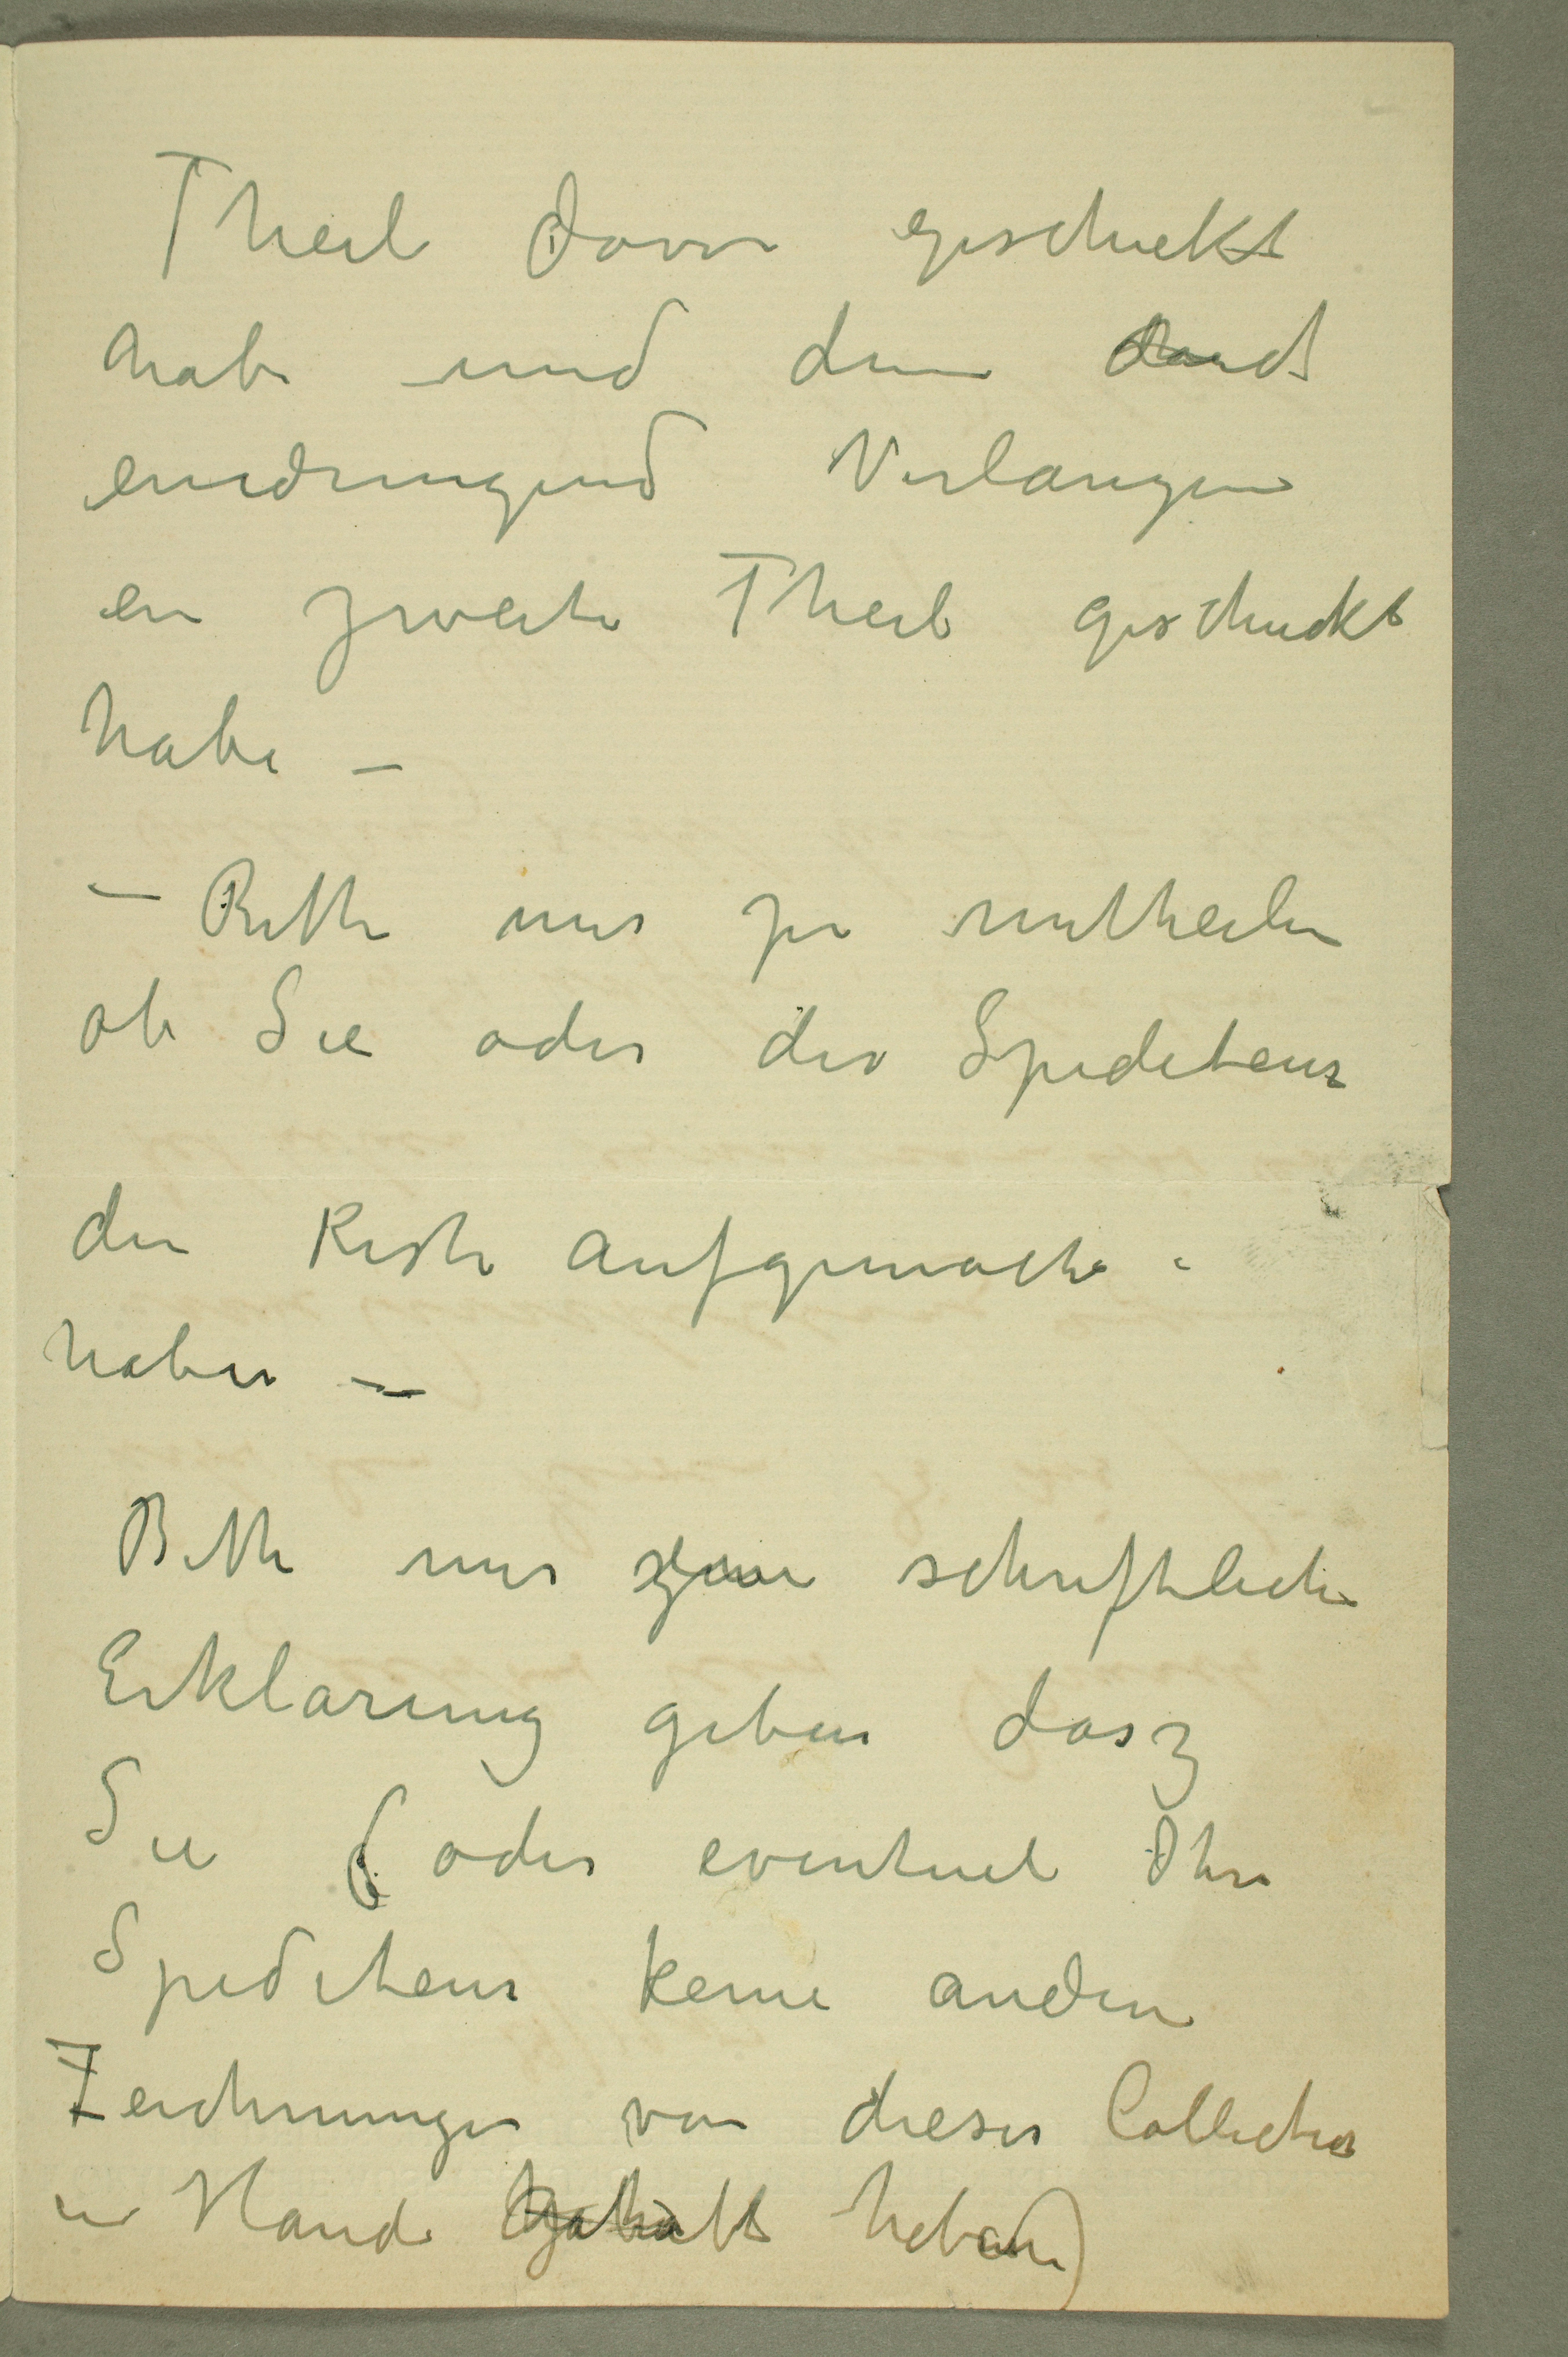 Theil davon geschickt
habe und dann
eindringend Verlangen
ein zweite Theil geschickt
habe –
– Bitte mir zu mittheilen
ob Sie oder der Spediteur
die Kiste aufgemacht
haben –
Bitte mir schriftliche
Erklarung geben dasz
Sie (oder eventuel Ihre
Spediteur keine andere
Zeichnungen von dieser Collection
in Hande gehabt haben)